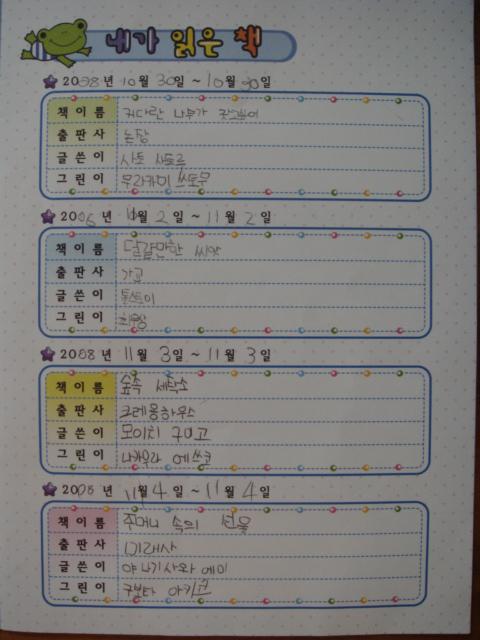 내가 읽은 책
2008년 10월 30일 ~ 10월 30일
책 이 름 커다란 나무가
출 판 사 논장
글 쓴 이 사토 사토루
그 린 이 무라카미 쓰토무
2006 년 11월 2일 ~ 11월 2일
책 이 름 달걀만한 씨앗
출 판 사 가교
글 쓴 이 톨스토이
그 린 이
2008년 11월 3일 ~ 11월 3일
책 이 름 숲속 세탁소
출 판 사 크레용하우스
글 쓴 이 모이치 구미고
그 린 이 나카무라 에쓰코
2008년 11월 4일 ~ 11월 4일
책 이 름 주머니 속의 선물
출 판 사 미래사
글 쓴 이 야나기사와 에미
그 린 이 구보타 아키코